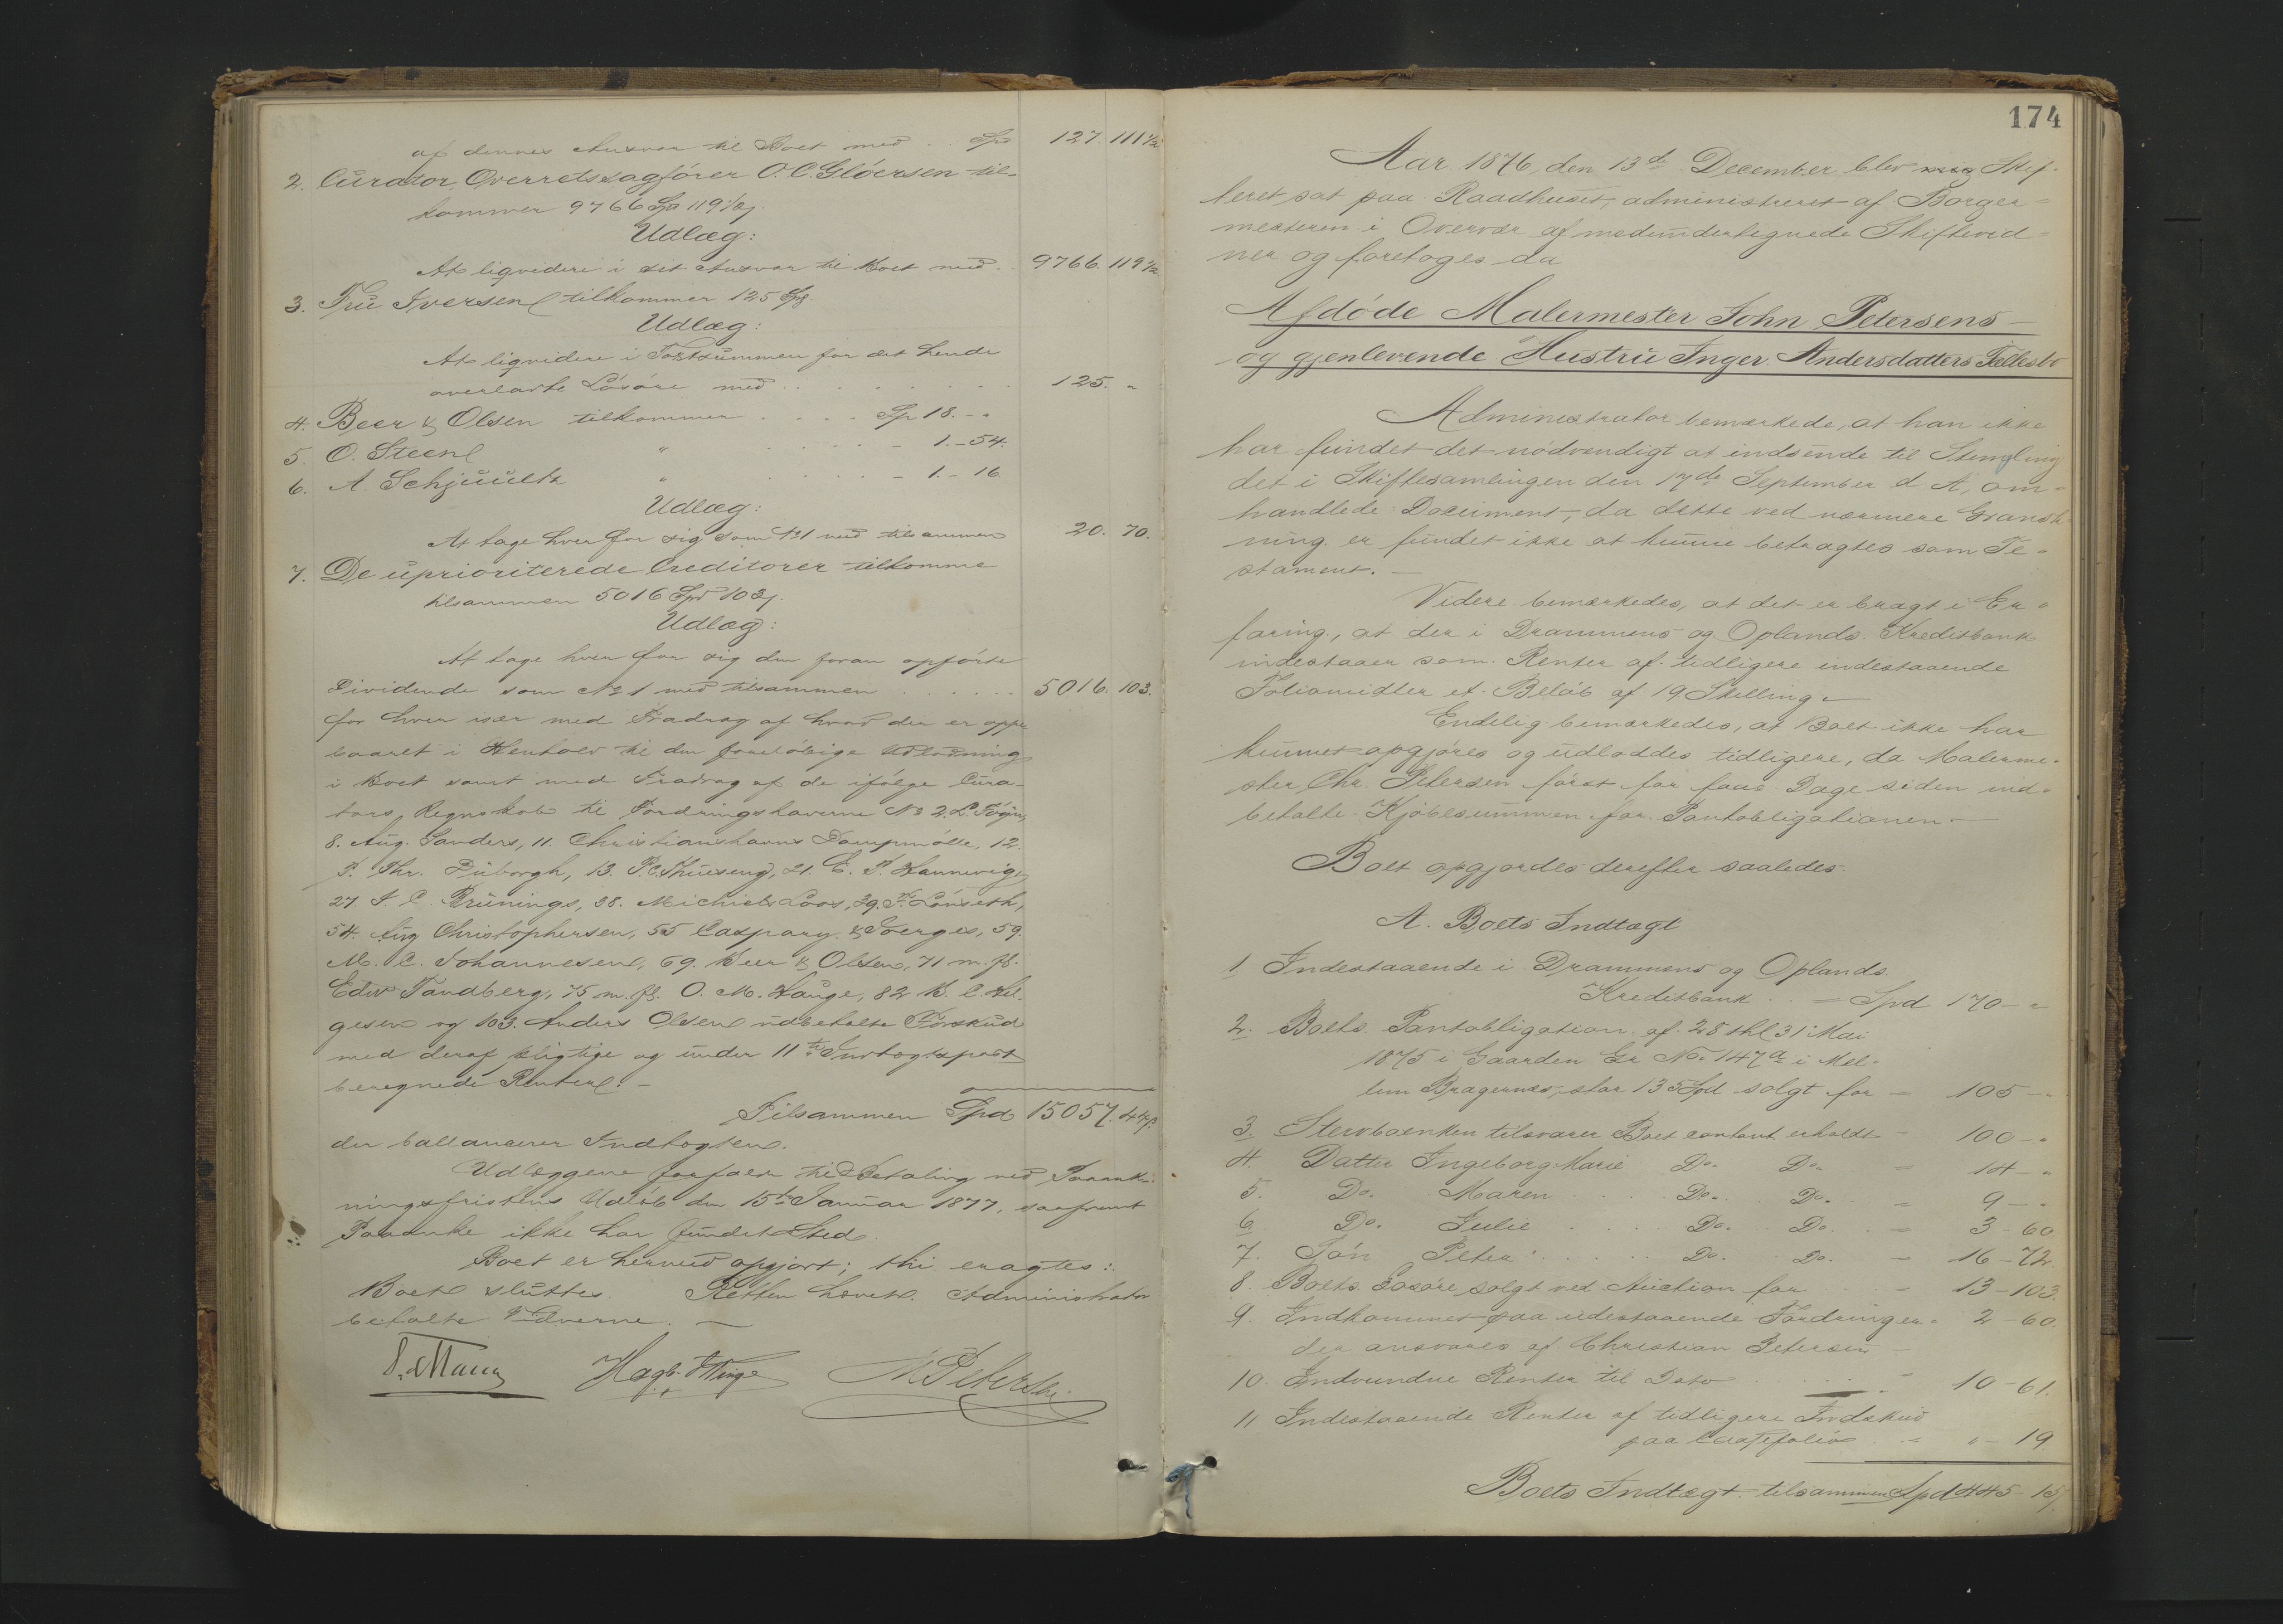 af dennes Ansvar til Boet med . . Spd 127. 111 1/2
2. Curator, Overretssagfører O. C. Gløersen til-
kommer 9766 Spd 119 1/2 ß.
Udlæg:
At liqvidere i sit Ansvar til Boet med . . 9766. 119 1/2
3. Fru Iversen tilkommer 125 Spd
Udlæg:
At liqvidere i Kjøbesummen for det hende
overladte Løsøre med . . . . . . . . 125. "
4. Beer & Olsen tilkommer . . . . Sp 18. - "
5. O. Steen " . . . . - 1. - 54.
6. A. Schjuultz " . . . . - 1. - 16.
Udlæg:
At tage hver for sig som No 1 med tilsammen 20. 70.
7. De uprioriterede Creditorer tilkomme
tilsammen 5016 Spd 103 ß.
Udlæg:
At tage hver for sig den foran opførte
Dividende som No 1 med tilsammen . . . . . . 5016. 103.
for hver især med Fradrag af hvad der er oppe-
baaret i Henhold til den foreløbige Udlodning
i Boet samt med Fradrag af de ifølge Cura-
tors Regnskab til Fordringshaverne No 2. L.
8. Aug. Sanders, 11. Christianshavns Dampmølle, 12.
P. Thr. Duborgh, 13. P. C. 21. E. F. Hannevig,
27. J. C. Brünings, 38. Michiels Loos, 39. F. Lønseth,
54. Aug Christophersen, 55 Caspary & Goerges, 59.
M. C. Johannesen, 69. Beer & Olsen, 71 m. fl.
Edw Tandberg, 75 m. fl. O. M. Hauge, 82 B. C. Hel-
gesen og 103. Anders Olsen udbetalte Forskud
med deraf pligtige og under 11te Indtægtspost
beregnede Renter. -
Tilsammen Spd 15057. 44 ß.
der ballancerer Indtægten.
Udlæggene forfalde til Betaling ved Paaank-
ningsfristens Udløb den 15de Januar 1877, saafremt
Paaanke ikke har fundet Sted.
Boet er hermed opgjort; thi eragtes:
Boet sluttes. Retten hævet. Administrator
betalte Vidnerne. -
174
Aar 1876, den 13de December blev Skif-
teret sat paa Raadhuset, administreret af Borger-
mesteren i Overvær af medundertegnede Skifteved-
ner og foretoges da
Afdøde Malermester John Petersens
og gjenlevende Hustru Inger Andersdatters Fællesbo
Administrator bemærkede, at han ikke
har fundet det nødvendigt at indsende til Stempling
det i Skiftesamlingen den 17de September d. A. om-
handlede Document, da dette ved nærmere Gransk-
ning er fundet ikke at kunne betragtes som Te-
stament. -
Videre bemærkedes, at det er bragt i Er-
faring, at der i Drammens og Oplands Kreditbank
indestaaer som Renter af tidligere indestaaende
Foliomidler et Beløb af 19 Skilling. -
Endelig bemærkedes, at Boet ikke har
kunnet opgjøres og udloddes tidligere, da Malerme-
ster Chr. Petersen først for faae Dage siden ind-
betalte Kjøbesummen for Pantobligationen. -
Boet opgjordes derefter saaledes.
A. Boets Indtægt
1. Indestaaende i Drammens og Oplands
Kreditbank . . = Spd 170 - "
2. Boets Pantobligation af 28 thl 31 Mai
1875 i Gaarden Gr No 147 a i Mel-
lem Bragernæs, stor 135 Spd solgt for = 105 - "
3. Stervboenken tilsvarer Boet contant erholdt = 100 - "
4. Datter Ingeborg Marie Do. Do. = 14 - "
5. Do. Maren . . . Do. Do. = 9 - "
6. Do. Julie . . . Do. Do. = 3 - 60
7. Søn Peter . . . Do. Do. = 16 - 72
8. Boets Løsøre solgt ved Auction for = 13 - 103.
9. Indkommet paa udestaaende Fordringer = 2 - 60.
der ansvares af Christian Petersen -
10. Indvundne Renter til Dato . . . = 10 - 61.
11 Indestaaende Renter af tidligere Indskud
paa = " - 19
Boets Indtægt tilsammen Spd 445 - 15 ß.